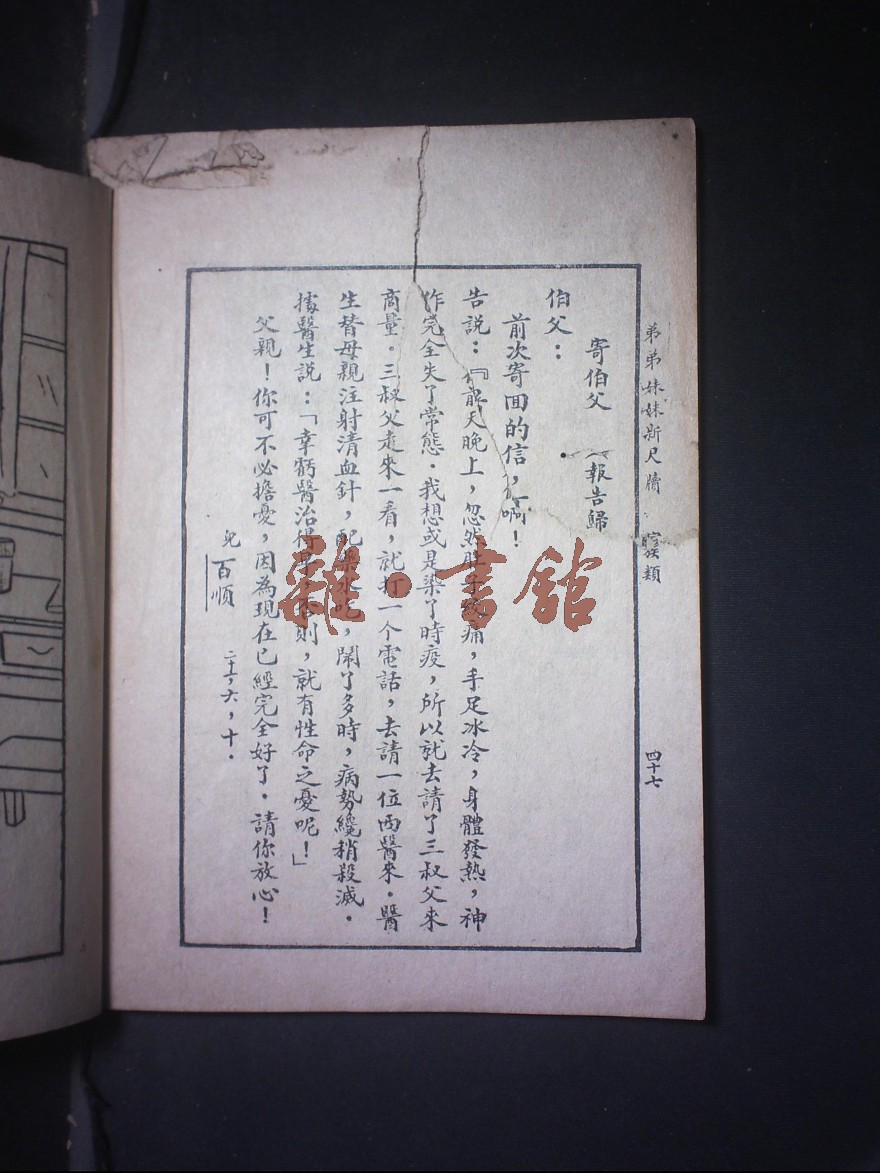 弟弟妹妹新尺牘 類 四十七
寄伯父 報告歸
伯父：
前次寄回的信，啊！
告說：『前天晚上，忽然肚子痛，手足冰冷，身體發熱，神
作完全失了常態．我想或是染了時疫，所以就去請了三叔父來
商量．三叔父走來一看，就打一个電話，去請一位西醫來．醫
生替母親注射清血針，配藥水吃，鬧了多時，病勢纔稍殺減．
據醫生說：「幸虧醫治得，否則，就有性命之憂呢！」
父親！你可不必擔憂，因為現在已經完全好了．請你放心！
兒百順 二十一，六，十．
雜·書館